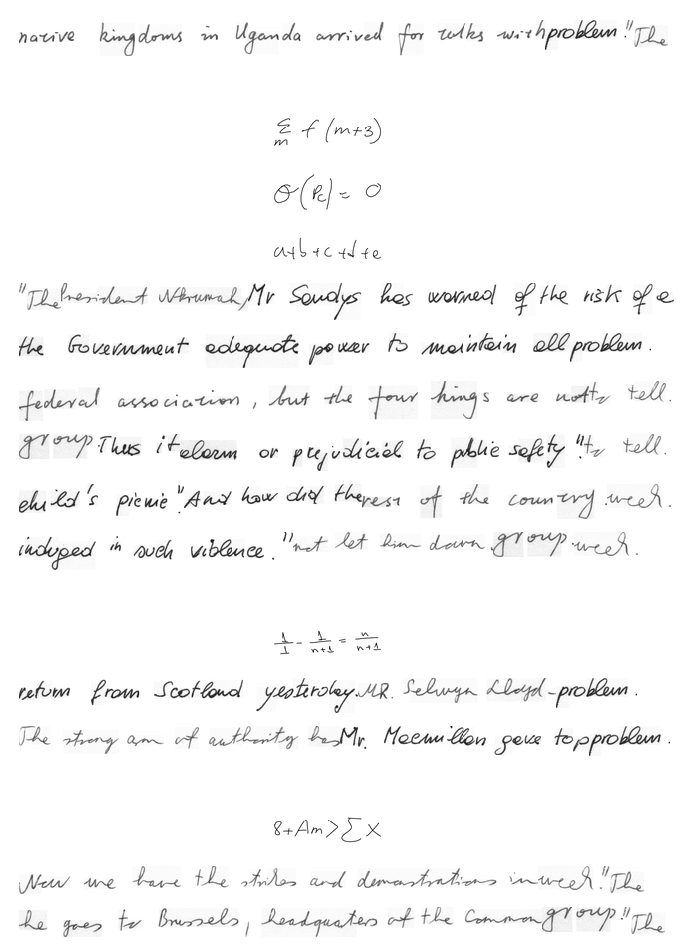 native kingdoms in Uganda arrived for talks with problem. "The
∑ f(m+3)
m
Θ(Pc) = 0
a+b+c+d+e
"The President Nkrumah, Mr Sandys has warned of the risk of a
the Government adequate power to maintain all problem.
federal association, but the four kings are not to tell.
group. Thus it alarm or prejudicial to public safety". to tell.
child's picnic". And how did the rest of the country. week.
indulged in such violence. "not let him down. group. week.
1/1 - 1/(n+1) = n/(n+1)
return from Scotland yesterday. MR. Selwyn Lloyd - problem.
The strong arm of authority has Mr. Macmillan gave top problem.
8+Am>∑X
Now we have the strikes and demonstrations in week. "The
he goes to Brussels, headquarters of the Common group. "The